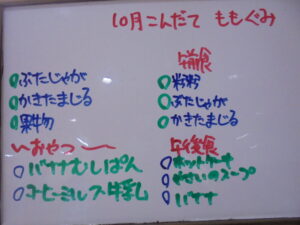 10月こんだて ももぐみ
ぶたじゃが
かきたまじる
果物
〜おやつ〜
バナナむしぱん
コーヒーミルク牛乳
午前食
粉粥
ぶたじゃが
かきたまじる
午後食
ホットケーキ
やさいのスープ
バナナ